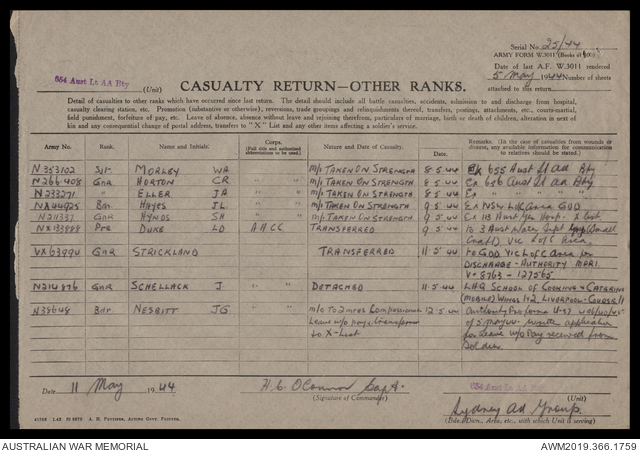 Serial No. 25/44
ARMY FORM W.3011 (Books of 100)
Date of last A.F. W.3011 rendered
5 May 1944 Number of sheets
attached to this return
654 Aust Lt AA Bty (Unit)
CASUALTY RETURN—OTHER RANKS.
Detail of casualties to other ranks which have occurred since last return. The detail should include all battle casualties, accidents, admission to and discharge from hospital,
casualty clearing station, etc. Promotion (substantive or otherwise), reversions, trade groupings and relinquishments thereof, transfers, postings, attachments, etc., courts-martial,
field punishment, forfeiture of pay, etc. Leave of absence, absence without leave and rejoining therefrom, particulars of marriage, birth or death of children, alteration in next of
kin and any consequential change of postal address, transfers to "X" List and any other items affecting a soldier's service.
Army No. Rank. Name and Initials. Corps. (Full title and authorized abbreviations to be used.) Nature and Date of Casualty. Date. Remarks. (In the case of casualties from wounds or disease, any available information for communication to relatives should be stated.)
N353102 Sjt MORLEY WA " " M/i TAKEN ON STRENGTH 8.5.44 Ex 655 Aust Lt aa Bty
N266408 Gnr HORTON CR " " M/i TAKEN ON STRENGTH 8.5.44 Ex 656 Aust Lt aa Bty
N233271 " ELLER JA " " M/i TAKEN ON STRENGTH 8.5.44 Ex " " " "
NX44925 HAYES JL " " M/i TAKEN ON STRENGTH 9.5.44 Ex NSW LHQ Area GDD
Gnr HYNDS SH " " M/i TAKEN ON STRENGTH 9.5.44 Ex 113 Aust Gen Hosp. X List
Pte DUKE LD AACC TRANSFERRED 9.5.44 To 3 Aust Water (Small
Craft). Vic L of C Area.
VX63994 Gnr STRICKLAND TRANSFERRED 11.5.44 to GDD Vic L of C Area for
DISCHARGE - AUTHORITY
V 8763 - 127565
N214876 Gnr SCHELLACK J " " DETACHED 11.5.44 LHQ SCHOOL OF COOKING & CATERING
(MOBILE) WING 142. LIVERPOOL - COURSE 11
N38648 Bdr NESBITT JG " " M/o To 2 mths Compassionate 12.5.44 Authority Proforma
Leave w/o pay & transfer of 5 May 44. Written application
to X-List for Leave w/o Pay received from
Soldier.
Date 11 May 1944 H.C. O'Connor Capt.
(Signature of Commander)
654 Aust Lt AA Bty (Unit)
Sydney AA Group.
(Bde., Divn., Area, etc., with which Unit is serving)
A. H. PETTIFER, ACTING GOVT. PRINTER.
AUSTRALIAN WAR MEMORIAL
AWM2019.366.1759